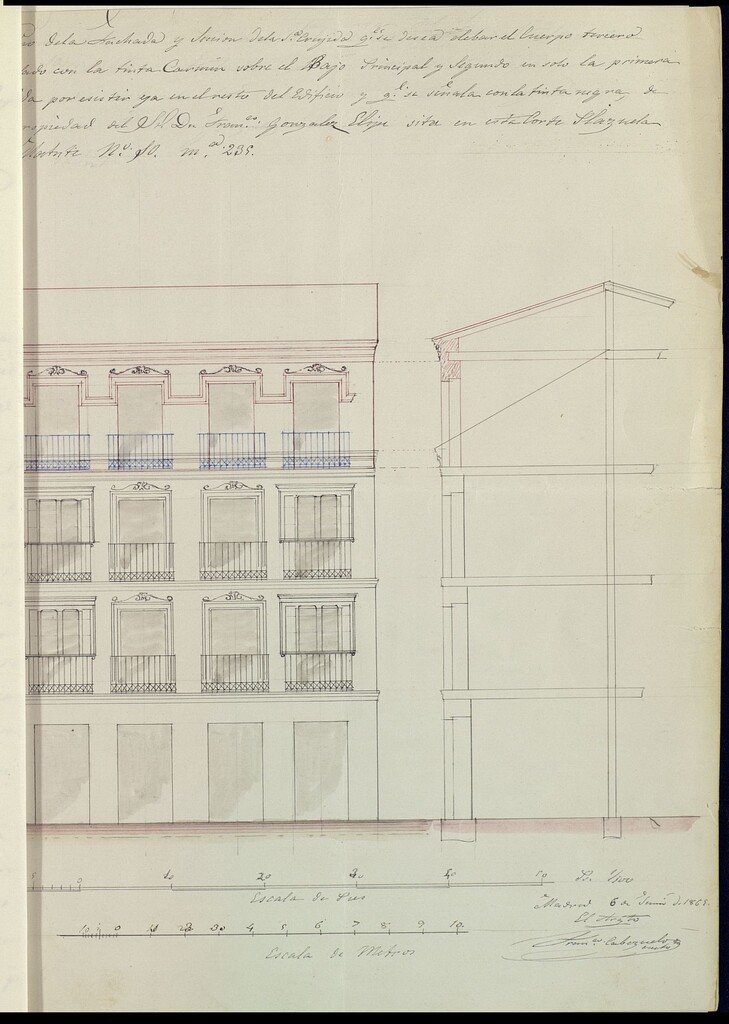 de la Fachada y Seccion de la 1ª Crujida qe. se desea elebar el Cuerpo tercero
con la tinta Carmin sobre el Bajo Principal y Segundo en solo la primera
da por existir ya en el resto del Edificio y qe. se señala con la tinta negra, de
propiedad del Sr. Dn. Franco. Gonzalez Elipe sita en esta Corte Plazuela
Nº. 10. 235.
10 20 30 40 50
Escala de Pies
Madrid 6 de Junio d. 1865.
10 0 1 2 3 4 5 6 7 8 9 10.
Escala de Metros
Franco. Cabezuelo